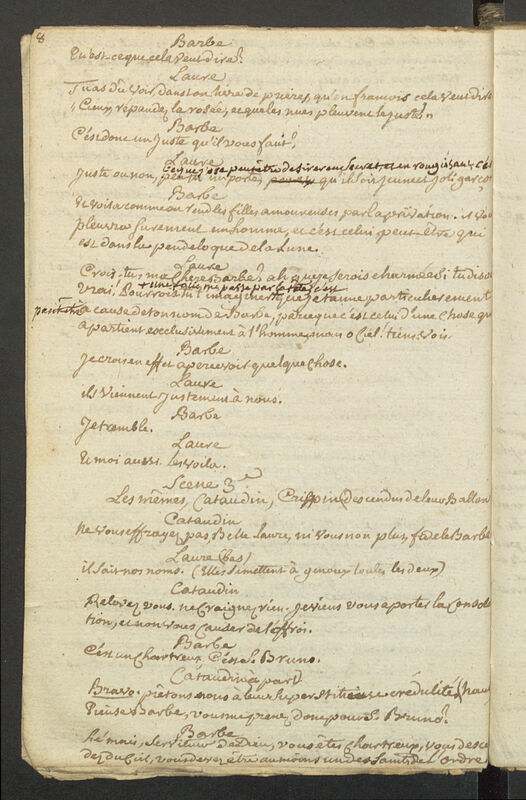 8
Barbe
Qu'est-ceque cela veut dire?
Laure
Tu as du voir dans ton livre de prières, qu'en francois cela veut dire
"Cieux, répandez la rosée, et que les nues pleuvent le juste."
Barbe
C'est donc un Juste qu'il vous faut?
Laure
juste ou non, peu m'importe, qu'il soit jeune et joli garçon
Barbe
Et voila comme on rend les filles amoureuses par la privation. il vous
pleuvra surement un homme, et c'est celui peut-être qui
est dans la pendeloque de la Lune.
Laure
Crois-tu, ma chere Barbe? ah que je serois charmée si tu disois
+ une folie me passe par la tête, c'est
vrai! Pourrois-tu t'imaginer que je t'aime particulierement
peut-être à cause de ton nom de Barbe, parce que c'est celui d'une chose qui
apartient exclusivement à l'homme, mais o Ciel! tiens, vois.
Barbe
Je crois en effet apercevoir quelque chose.
Laure
ils viennent justement à nous.
Barbe
Je tremble.
Laure
Et moi aussi. les voila.
Scene 3e
Les mêmes, Cataudin, Crispin, descendus de leur Ballon
Cataudin
Ne vous effrayez pas Belle Laure, ni vous non plus, fidele Barbe
Laure (bas)
il sait nos noms. (Elles se mettent à genoux toutes les deux)
Cataudin
Relevez vous. ne craignez rien. je viens vous aporter la consola
tion, et non vous causer de l'effroi.
Barbe
C'est un Chartreux, C'est St. Bruno.
Cataudin à part
Bravo. prêtons nous à leur superstitieuse crédulité (haut)
Pieuse Barbe, vous me prenez donc pour St. Bruno?
Barbe
hé mais, serviteur de Dieu, vous êtes Chartreux, vous desce
dez du ciel, vous devez être au moins un des Saints de l'ordre